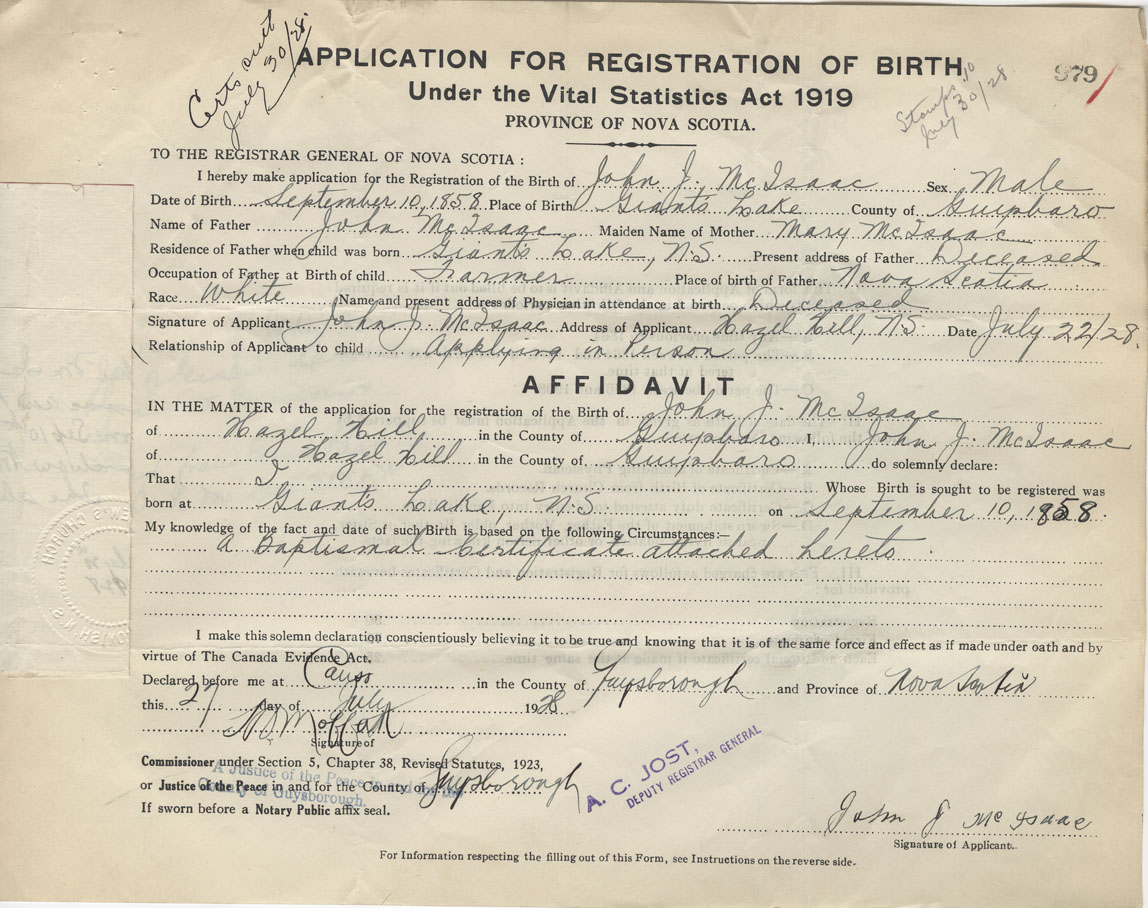 Certs sent
July 30/28.
APPLICATION FOR REGISTRATION OF BIRTH
979
Under the Vital Statistics Act 1919
Stamps
July 30/28.
PROVINCE OF NOVA SCOTIA.
TO THE REGISTRAR GENERAL OF NOVA SCOTIA :
I hereby make application for the Registration of the Birth of John J. McIsaac Sex Male
Date of Birth September 10, 1858 Place of Birth Giants Lake County of Guysboro
Name of Father John McIsaac Maiden Name of Mother Mary McIsaac
Residence of Father when child was born Giant's Lake, N.S. Present address of Father Deceased
Occupation of Father at Birth of child Farmer Place of birth of Father Nova Scotia
Race White Name and present address of Physician in attendance at birth Diceased
Signature of Applicant John J. McIsaac Address of Applicant Hazel Hill, N.S Date July 22/28.
Relationship of Applicant to child Applying in Person
AFFIDAVIT
IN THE MATTER of the application for the registration of the Birth of John J. McIsaac
of Hazel Hill in the County of Guysboro I, John J. McIsaac
of Hazel Hill in the County of Guysboro do solemnly declare:
That I Whose Birth is sought to be registered was
born at Giant's Lake, N.S on September 10, 1858.
My knowledge of the fact and date of such Birth is based on the following Circumstances:—
a Baptismal Certificate attached hereto.
I make this solemn declaration conscientiously believing it to be true and knowing that it is of the same force and effect as if made under oath and by
virtue of The Canada Evidence Act.
Declared before me at Canso in the County of Guysborough and Province of Nova Scotia
this 27 day of July 1928
Moffatt
Signature of
Commissioner under Section 5, Chapter 38, Revised Statutes, 1923,
A Justice of the Peace in and for the
or Justice of the Peace in and for the County of Guysborough
County of Guysborough.
If sworn before a Notary Public affix seal.
A. C. JOST,
DEPUTY REGISTRAR GENERAL
John J McIsaac
Signature of Applicant.
For Information respecting the filling out of this Form, see Instructions on the reverse side.